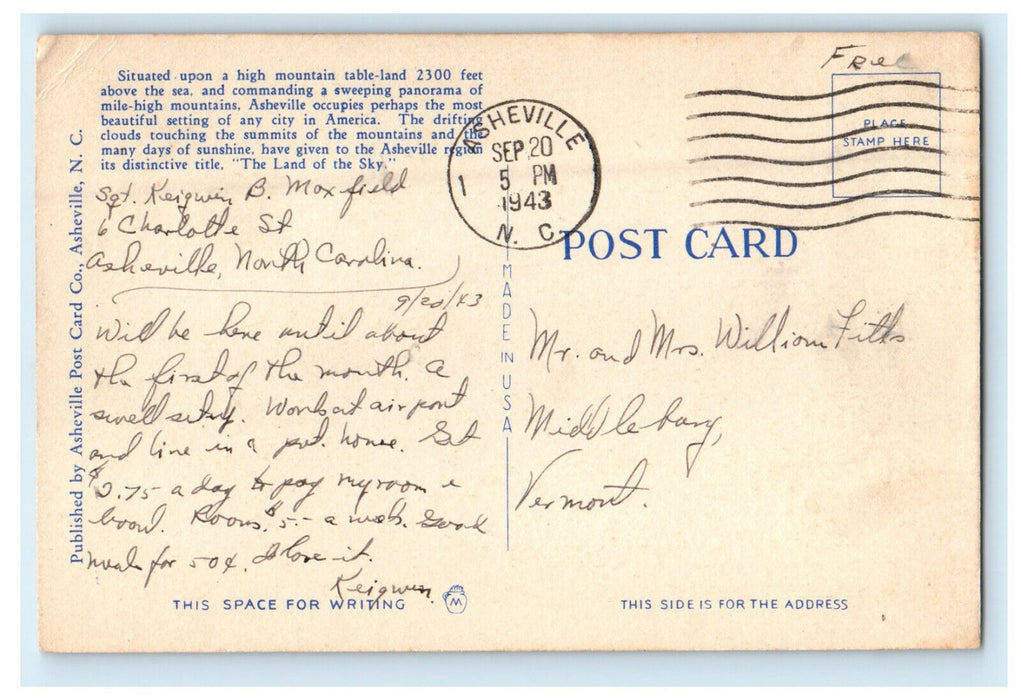 Situated upon a high mountain table-land 2300 feet
above the sea, and commanding a sweeping panorama of
mile-high mountains, Asheville occupies perhaps the most
beautiful setting of any city in America. The drifting
clouds touching the summits of the mountains and the
many days of sunshine, have given to the Asheville region
its distinctive title, "The Land of the Sky."
Sgt. Keigwin B. Maxfield
6 Charlotte St
Asheville, North Carolina.
9/20/43
Will be here until about
the first of the month. A
swell setup. Work at airport
and live in a pvt. home. Get
$2.75 a day to pay my room &
board. Rooms $5.- a week. Good
meals for 50¢. I love it.
Keigwin.
THIS SPACE FOR WRITING
M
Published by Asheville Post Card Co., Asheville, N. C.
MADE IN USA
ASHEVILLE
SEP 20
1 5 PM
1943
N. C.
Free
PLACE
STAMP HERE
POST CARD
Mr. and Mrs. William Fitts
Middlebury,
Vermont.
THIS SIDE IS FOR THE ADDRESS